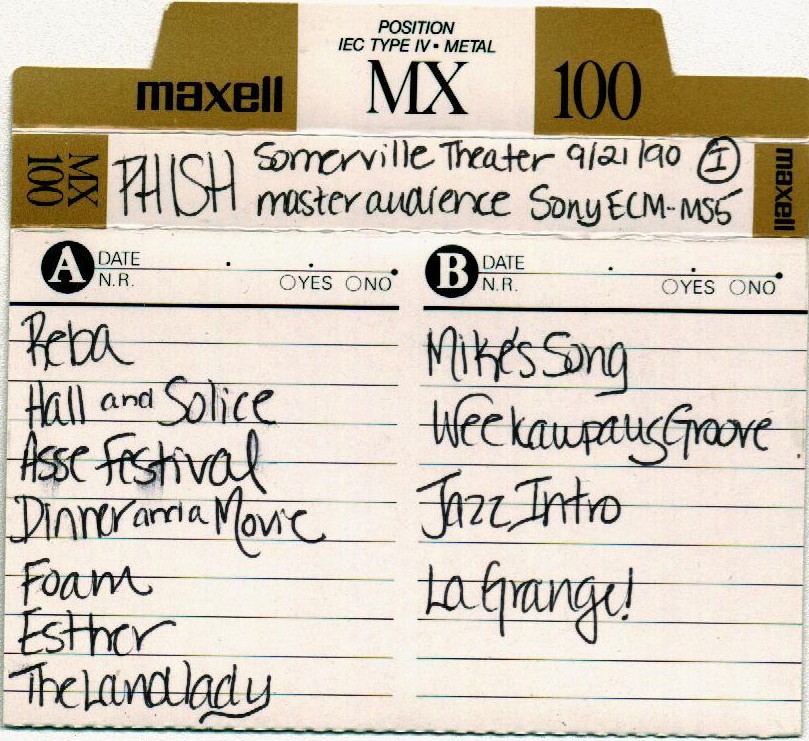 POSITION
IEC TYPE IV • METAL
maxell MX 100
MX 100
PHISH Somerville Theater 9/21/90 I
master audience Sony ECM-MS5
maxell
A DATE
N.R. YES NO
Reba
Hall and Solice
Asse Festival
Dinner and a Movie
Foam
Esther
The Landlady
B DATE
N.R. YES NO
Mike's Song
Weekawpaug Groove
Jazz Intro
La Grange!